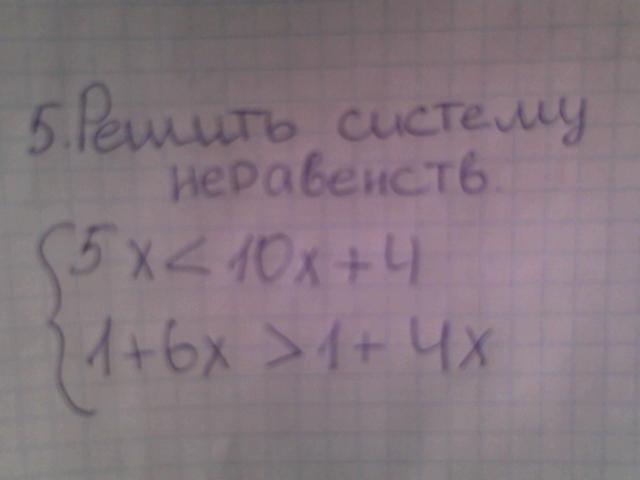 5. Решить систему
неравенств.
5x < 10x + 4
1 + 6x > 1 + 4x